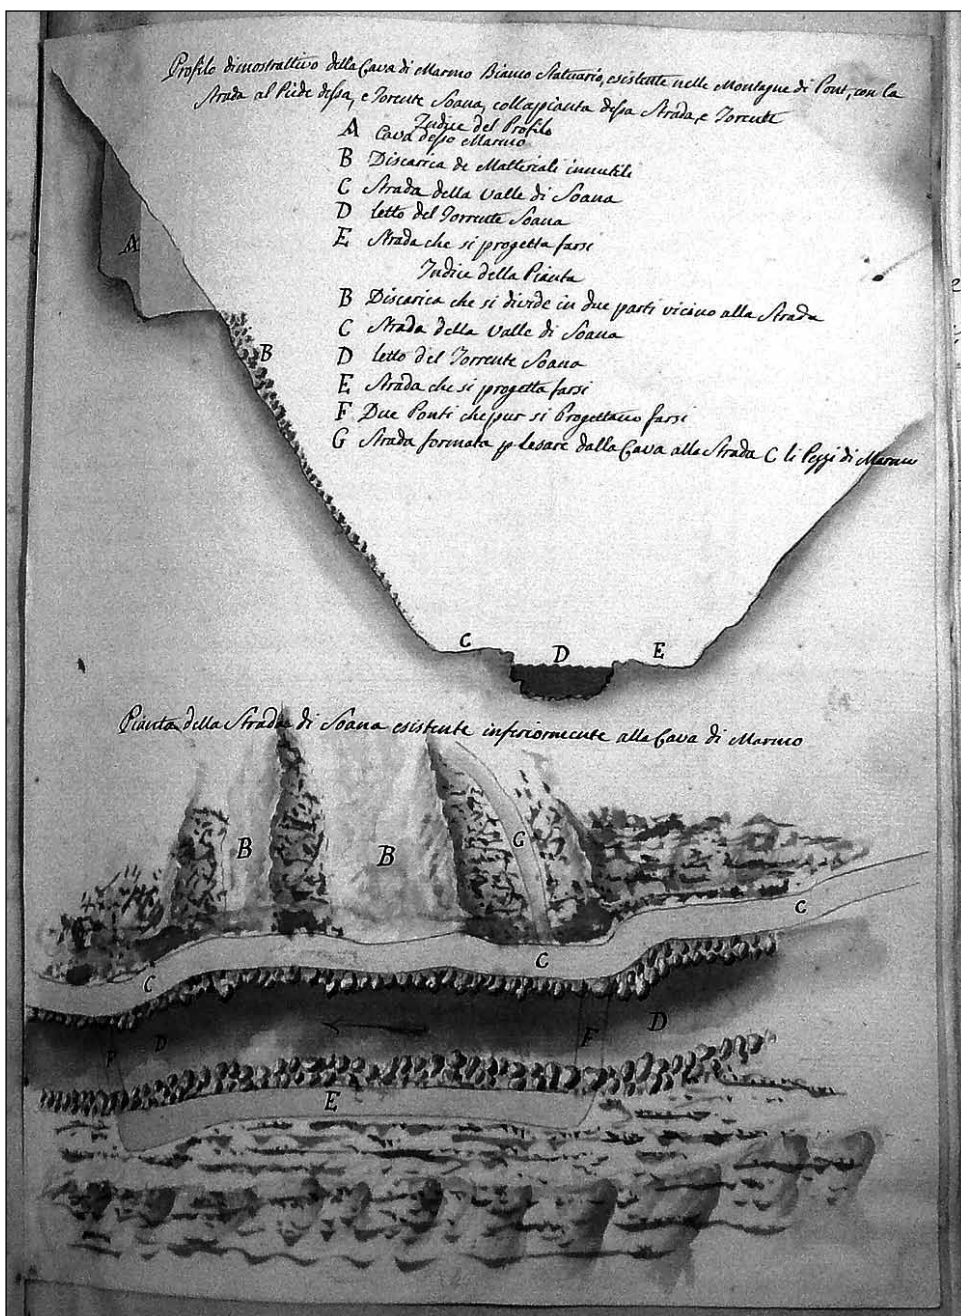 Profilo dimostrattivo della Cava di Marmo Bianco Statuario, esistente nelle Montagne di Pont, con la
Strada al Piede dessa, e Torente Soana, colla pianta dessa Strada, e Torente
Indice del Profilo
A Cava desso Marmo
B Discarica de Matteriali innutili
C Strada della valle di Soana
D letto del Torrente Soana
E Strada che si progetta farsi
Indice della Pianta
B Discarica che si divide in due parti vicino alla Strada
C Strada della valle di Soana
D letto del Torrente Soana
E Strada che si progetta farsi
F Due Ponti che pur si Progettano farsi
G Strada formata p lesare dalla Cava alla Strada C li Pezzi di Marmo
A
B
C D E
Pianta della Strada di Soana esistente inferiormente alla Cava di Marmo
B B G
C
C C
D
F D F
E